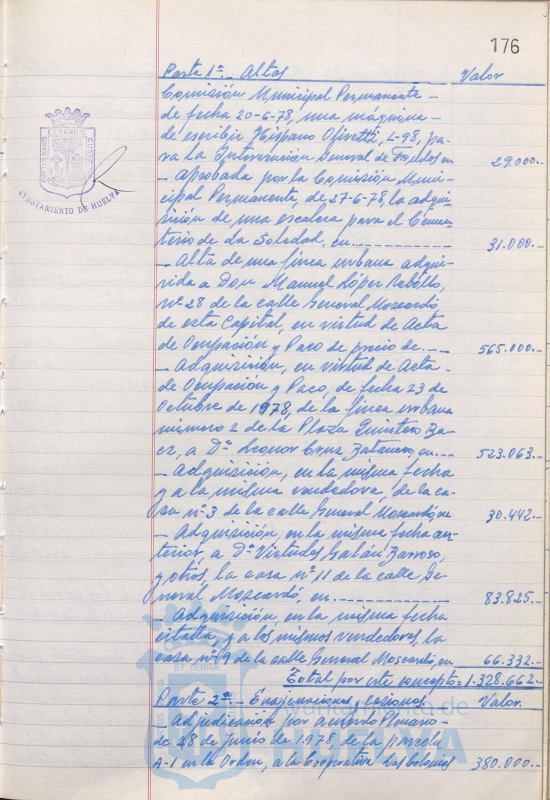 176
Parte 1ª.- Altas Valor
Comisión Municipal Permanente-
de fecha 20-6-78, una máquina-
de escribir Hispano Olivetti, L-98, pa-
ra la Intervención General de Fondos en 29.000.-
- Aprobada por la Comisión Munici-
cipal Permanente, de 27-6-78, la adqui-
sición de una escalera para el Cemen-
terio de La Soledad, en.---------- 31.000.-
- Alta de una finca urbana adqui-
rida a Don Manuel López Rebollo,
nº 28 de la calle General Moscardó
de esta Capital, en virtud de Acta
de Ocupación y Pago de precio de.-- 565.000.-
- Adquisición, en virtud de Acta-
de Ocupación y Pago, de fecha 23 de
Octubre de 1978, de la finca urbana
número 2 de la Plaza Quintero Ba-
ez, a Dª Leonor Cruz en.--- 523.063.-
- Adquisición, en la misma fecha
y a la misma vendedora, de la ca-
sa nº 3 de la calle General Moscardó, en 30.442.-
- Adquisición, en la misma fecha an-
terior, a Dª Virtudes Galán Barroso,
y otros, la casa nº 11 de la calle Ge-
neral Moscardó, en.---------- 83.825.-
- Adquisición, en la misma fecha
citada, y a los mismos vendedores, la
casa nº 19 de la calle General Moscardó, en 66.332.-
Total por este concepto = 1.328.662.-
Parte 2ª.- Enajenaciones, cesiones Valor.
Adjudicación por acuerdo Plenario-
de 28 de Junio de 1.978, de la parcela
A-1 en la Orden, a la Cooperativa Las Colonias 380.000.-
PORTUS MARIS ET TERRE CUSTODIA
AYUNTAMIENTO DE HUELVA
ET TERRA
Ayuntamiento de
HUELVA